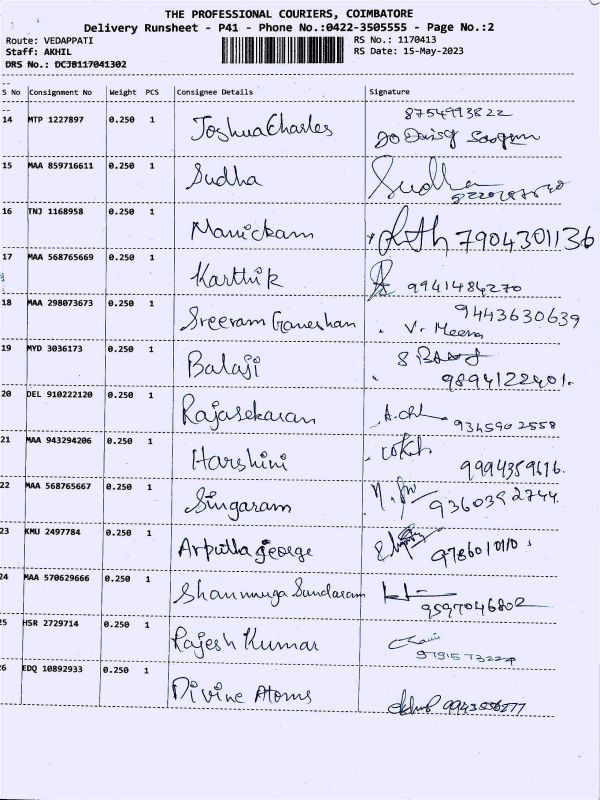 THE PROFESSIONAL COURIERS, COIMBATORE
Delivery Runsheet - P41 - Phone No.:0422-3505555 - Page No.:2
Route: VEDAPPATI RS No.: 1170413
Staff: AKHIL RS Date: 15-May-2023
DRS No.: DCJB117041302
S No Consignment No Weight PCS Consignee Details Signature
8754993822
14 MTP 1227897 0.250 1 Joshua Charles
15 MAA 859716611 0.250 1 Sudha Sudha
16 TNJ 1168958 0.250 1 Manickam 7904301136
17 MAA 568765669 0.250 1 Karthik 9941484270
18 MAA 298073673 0.250 1 Sreeram Ganeshan 9443630639
V. Meena
19 MYD 3036173 0.250 1 Balaji
9894122401.
20 DEL 910222120 0.250 1 Rajasekaran 9345902558
21 MAA 943294206 0.250 1 Harshini 9994359616.
22 MAA 568765667 0.250 1 Singaram 9360392744
23 KMU 2497784 0.250 1 Arputha george 9786010110
24 MAA 570629666 0.250 1 Shanmuga Sundaram
9597046802
25 HSR 2729714 0.250 1 Rajesh Kumar
26 EDQ 10892933 0.250 1 Divine Atoms 9943556277